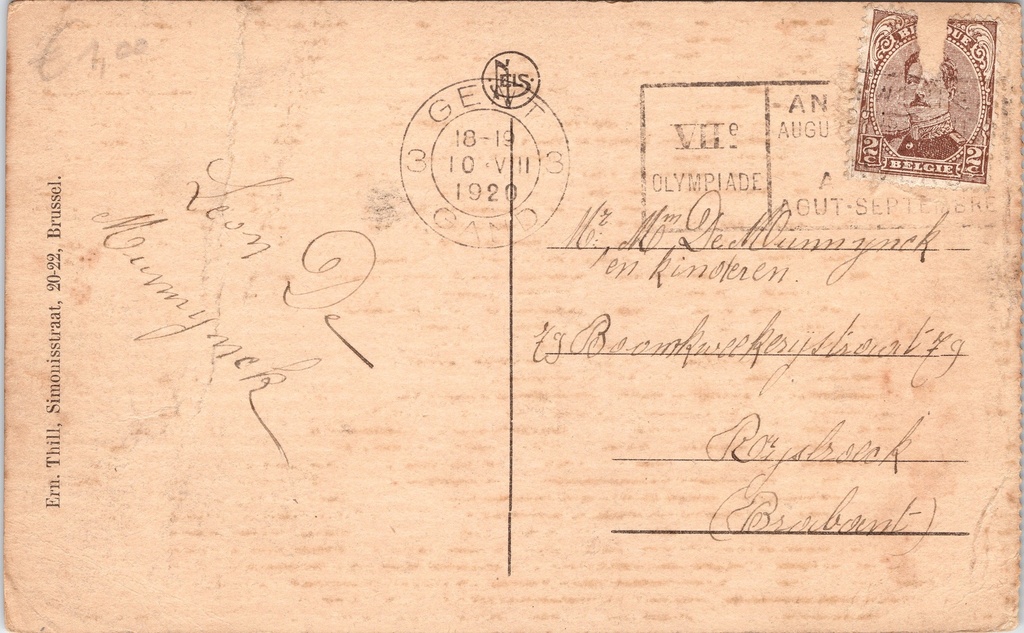 € 4,00
NELS
GENT
18-19
3 10·VIII 3
1920
GAND
VIIe
OLYMPIADE
-AN
AUGU
A
AOUT-SEPTEMBRE
BELGIE
2c 2c
Leon De
Munnynck
Mr. Mm De Munnynck
en kinderen.
79 Boomkweekerijstraat 79
Ruysbroeck
(Brabant)
Ern. Thill, Simonisstraat, 20-22, Brussel.